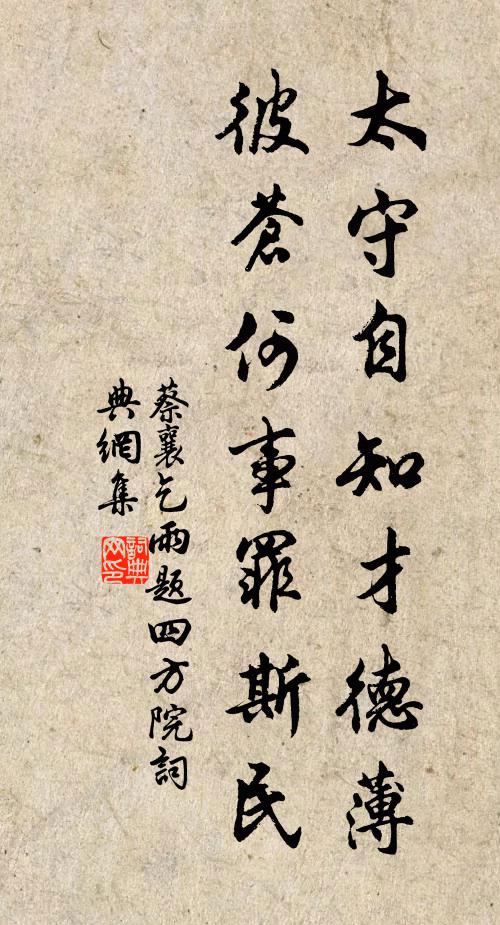 太守自知才德薄
彼苍何事罪斯民
蔡襄乞雨题四方院词
典網集
詞典
网印